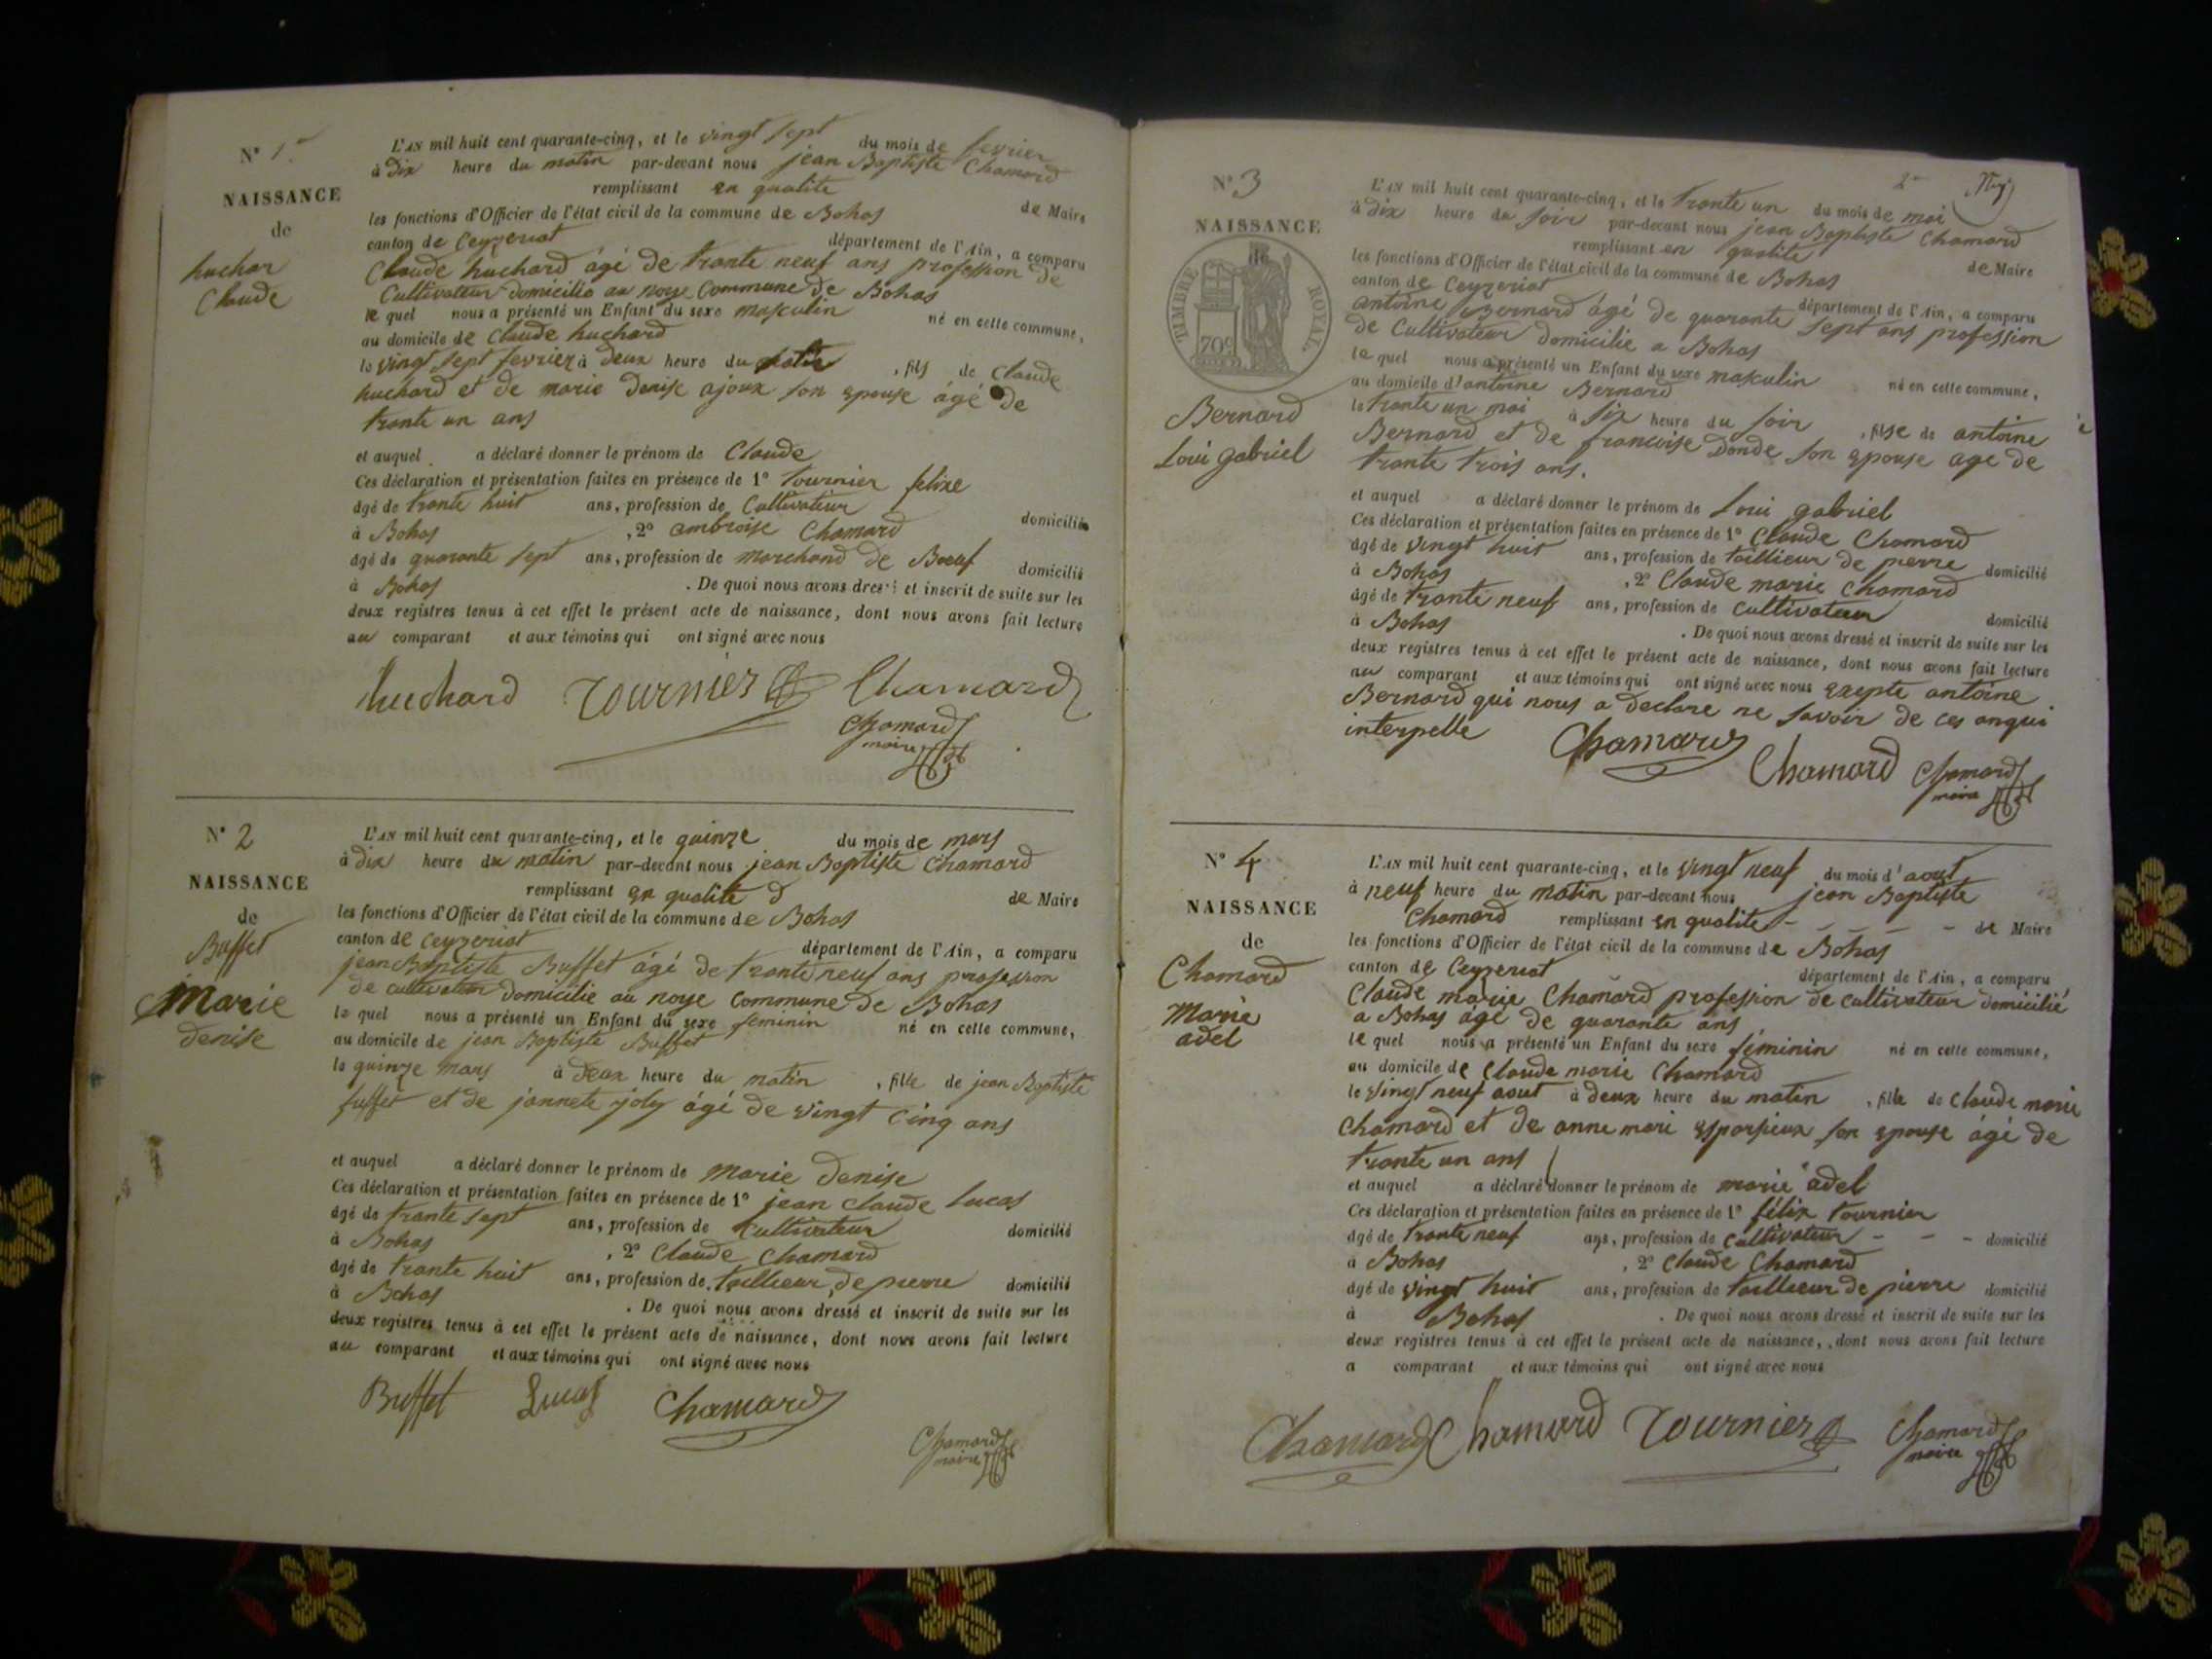 N° 1er
NAISSANCE
de
huchar
Claude
L'AN mil huit cent quarante-cinq, et le vingt sept du mois de fevrier
à Dix heure du matin par-devant nous jean Baptiste Chamard
remplissant en qualite de Maire
les fonctions d'Officier de l'état civil de la commune de Bohas
canton de Ceyzeriat département de l'Ain, a comparu
Claude huchard âgé de trante neuf ans profession de
Cultivateur domicilie au noye Commune de Bohas
le quel nous a présenté un Enfant du sexe masculin né en cette commune,
au domicile de Claude huchard
le vingt sept fevrier à deux heure du matin , fils de Claude
huchard et de marie denise ajoux son epouse âgé de
trante un ans
et auquel a déclaré donner le prénom de Claude
Ces déclaration et présentation faites en présence de 1° tournier felixe
âgé de trante huit ans, profession de Cultivateur domicilié
à Bohas , 2° ambroise Chamard
âgé de quarante sept ans, profession de marchand de Boeuf domicilié
à Bohas . De quoi nous avons dressé et inscrit de suite sur les
deux registres tenus à cet effet le présent acte de naissance, dont nous avons fait lecture
au comparant et aux témoins qui ont signé avec nous
huchard Tournier Chamard
Chamard
maire
N° 2
NAISSANCE
de
Buffet
Marie
denise
L'AN mil huit cent quarante-cinq, et le quinze du mois de mars
à dix heure du matin par-devant nous jean Baptiste Chamard
remplissant en qualite d de Maire
les fonctions d'Officier de l'état civil de la commune de Bohas
canton de Ceyzeriat département de l'Ain, a comparu
jean Baptiste Buffet âgé de trante neuf ans profession
de cultivateur domicilie au noye Commune de Bohas
le quel nous a présenté un Enfant du sexe feminin né en cette commune,
au domicile de jean Baptiste Buffet
le quinze mars à deux heure du matin , fille de jean Baptiste
fuffet et de jannete joly âgé de vingt cinq ans
et auquel a déclaré donner le prénom de marie denise
Ces déclaration et présentation faites en présence de 1° jean claude lucas
âgé de trante sept ans, profession de Cultivateur domicilié
à Bohas , 2° Claude Chamard
âgé de trante huit ans, profession de taillieur de pierre domicilié
à Bohas . De quoi nous avons dressé et inscrit de suite sur les
deux registres tenus à cet effet le présent acte de naissance, dont nous avons fait lecture
au comparant et aux témoins qui ont signé avec nous
Buffet Lucas Chamard
Chamard
maire
2e
N° 3
NAISSANCE
TIMBRE ROYAL
70c
Bernard
Loui gabriel
L'AN mil huit cent quarante-cinq, et le trante un du mois de mai
à dix heure du soir par-devant nous jean Baptiste Chamard
remplissant en qualite de Maire
les fonctions d'Officier de l'état civil de la commune de Bohas
canton de Ceyzeriat département de l'Ain, a comparu
antoine Bernard âgé de quarante sept ans profession
de Cultivateur domicilie a Bohas
le quel nous a présenté un Enfant du sexe masculin né en cette commune,
au domicile d'antoine Bernard
le trante un mai à six heure du soir , filse de antoine
Bernard et de francoise Donde son epouse age de
trante trois ans.
et auquel a déclaré donner le prénom de Loui gabriel
Ces déclaration et présentation faites en présence de 1° Claude Chamard
âgé de vingt huit ans, profession de taillieur de pierre domicilié
à Bohas , 2° Claude marie Chamard
âgé de trante neuf ans, profession de Cultivateur domicilié
à Bohas . De quoi nous avons dressé et inscrit de suite sur les
deux registres tenus à cet effet le présent acte de naissance, dont nous avons fait lecture
au comparant et aux témoins qui ont signé avec nous exepte antoine
Bernard qui nous a declare ne savoir de ces anqui
interpelle
Chamard Chamard Chamard
maire
N° 4
NAISSANCE
de
Chamard
Marie
adel
L'AN mil huit cent quarante-cinq, et le vingt neuf du mois d'aout
à neuf heure du matin par-devant nous jean Baptiste
Chamard remplissant en qualite - - - - - de Maire
les fonctions d'Officier de l'état civil de la commune de Bohas
canton de Ceyzeriat département de l'Ain, a comparu
Claude marie Chamard profession de cultivateur domicilié
a Bohas âgé de quarante ans
le quel nous a présenté un Enfant du sexe féminin né en cette commune,
au domicile de Claude marie Chamard
le vingt neuf aout à deux heure du matin , fille de Claude marie
Chamard et de anne mari esparsieux son epouse âgé de
trante un ans
et auquel a déclaré donner le prénom de marie adel
Ces déclaration et présentation faites en présence de 1° félix tournier
âgé de trante neuf ans, profession de Cultivateur - - - domicilié
à Bohas , 2° Claude Chamard
âgé de vingt huit ans, profession de taillieur de pierre domicilié
à Bohas . De quoi nous avons dressé et inscrit de suite sur les
deux registres tenus à cet effet le présent acte de naissance, dont nous avons fait lecture
a comparant et aux témoins qui ont signé avec nous
Chamard Chamard Tournier Chamard
maire